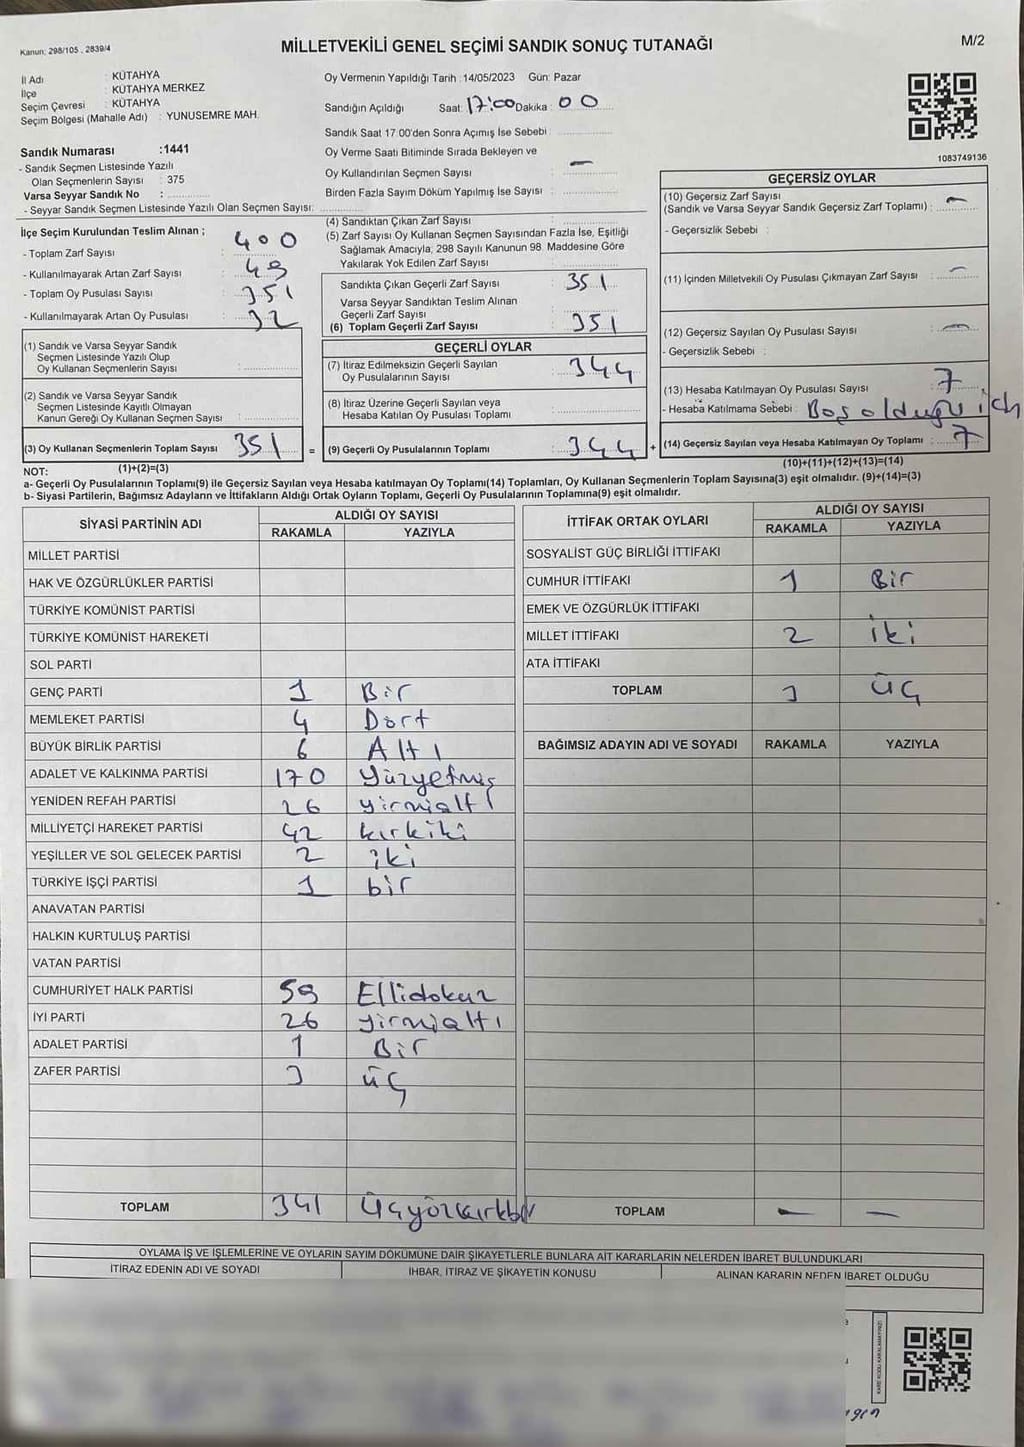 Kanun: 298/105 , 2839/4
MİLLETVEKİLİ GENEL SEÇİMİ SANDIK SONUÇ TUTANAĞI
M/2
İl Adı : KÜTAHYA
İlçe : KÜTAHYA MERKEZ
Seçim Çevresi : KÜTAHYA
Seçim Bölgesi (Mahalle Adı) : YUNUSEMRE MAH.
Sandık Numarası :1441
- Sandık Seçmen Listesinde Yazılı
Olan Seçmenlerin Sayısı : 375
Varsa Seyyar Sandık No :
- Seyyar Sandık Seçmen Listesinde Yazılı Olan Seçmen Sayısı:
Oy Vermenin Yapıldığı Tarih :14/05/2023 Gün: Pazar
Sandığın Açıldığı Saat: 17:00 Dakika : 00
Sandık Saat 17 00'den Sonra Açımış İse Sebebi :
Oy Verme Saati Bitiminde Sırada Bekleyen ve
Oy Kullandırılan Seçmen Sayısı : —
Birden Fazla Sayım Döküm Yapılmış İse Sayısı :
1083749136
İlçe Seçim Kurulundan Teslim Alınan ;
- Toplam Zarf Sayısı : 400
- Kullanılmayarak Artan Zarf Sayısı : 49
- Toplam Oy Pusulası Sayısı : 351
- Kullanılmayarak Artan Oy Pusulası : 32
(1) Sandık ve Varsa Seyyar Sandık
Seçmen Listesinde Yazılı Olup
Oy Kullanan Seçmenlerin Sayısı :
(2) Sandık ve Varsa Seyyar Sandık
Seçmen Listesinde Kayıtlı Olmayan
Kanun Gereği Oy Kullanan Seçmen Sayısı :
(3) Oy Kullanan Seçmenlerin Toplam Sayısı 351 =
(4) Sandıktan Çıkan Zarf Sayısı :
(5) Zarf Sayısı Oy Kullanan Seçmen Sayısından Fazla İse, Eşitliği
Sağlamak Amacıyla; 298 Sayılı Kanunun 98. Maddesine Göre
Yakılarak Yok Edilen Zarf Sayısı :
Sandıkta Çıkan Geçerli Zarf Sayısı : 351
Varsa Seyyar Sandıktan Teslim Alınan
Geçerli Zarf Sayısı :
(6) Toplam Geçerli Zarf Sayısı : 351
GEÇERLİ OYLAR
(7) İtiraz Edilmeksizin Geçerli Sayılan
Oy Pusulalarının Sayısı : 344
(8) İtiraz Üzerine Geçerli Sayılan veya
Hesaba Katılan Oy Pusulası Toplamı :
(9) Geçerli Oy Pusulalarının Toplamı : 344 +
GEÇERSİZ OYLAR
(10) Geçersiz Zarf Sayısı
(Sandık ve Varsa Seyyar Sandık Geçersiz Zarf Toplamı) : —
- Geçersizlik Sebebi :
(11) İçinden Milletvekili Oy Pusulası Çıkmayan Zarf Sayısı : —
(12) Geçersiz Sayılan Oy Pusulası Sayısı : —
- Geçersizlik Sebebi :
(13) Hesaba Katılmayan Oy Pusulası Sayısı : 7
- Hesaba Katılmama Sebebi : Boş olduğu için
(14) Geçersiz Sayılan veya Hesaba Katılmayan Oy Toplamı : 7
NOT: (1)+(2)=(3) (10)+(11)+(12)+(13)=(14)
a- Geçerli Oy Pusulalarının Toplamı(9) ile Geçersiz Sayılan veya Hesaba katılmayan Oy Toplamı(14) Toplamları, Oy Kullanan Seçmenlerin Toplam Sayısına(3) eşit olmalıdır. (9)+(14)=(3)
b- Siyasi Partilerin, Bağımsız Adayların ve İttifakların Aldığı Ortak Oyların Toplamı, Geçerli Oy Pusulalarının Toplamına(9) eşit olmalıdır.
SİYASİ PARTİNİN ADI ALDIĞI OY SAYISI
RAKAMLA YAZIYLA
MİLLET PARTİSİ
HAK VE ÖZGÜRLÜKLER PARTİSİ
TÜRKİYE KOMÜNİST PARTİSİ
TÜRKİYE KOMÜNİST HAREKETİ
SOL PARTİ
GENÇ PARTİ 1 Bir
MEMLEKET PARTİSİ 4 Dört
BÜYÜK BİRLİK PARTİSİ 6 Altı
ADALET VE KALKINMA PARTİSİ 170 Yüzyetmiş
YENİDEN REFAH PARTİSİ 26 yirmialtı
MİLLİYETÇİ HAREKET PARTİSİ 42 kırkiki
YEŞİLLER VE SOL GELECEK PARTİSİ 2 iki
TÜRKİYE İŞÇİ PARTİSİ 1 bir
ANAVATAN PARTİSİ
HALKIN KURTULUŞ PARTİSİ
VATAN PARTİSİ
CUMHURİYET HALK PARTİSİ 59 Ellidokuz
İYİ PARTİ 26 yirmialtı
ADALET PARTİSİ 1 Bir
ZAFER PARTİSİ 3 üç
TOPLAM 341 Üçyüzkırkbir
İTTİFAK ORTAK OYLARI ALDIĞI OY SAYISI
RAKAMLA YAZIYLA
SOSYALİST GÜÇ BİRLİĞİ İTTİFAKI
CUMHUR İTTİFAKI 1 Bir
EMEK VE ÖZGÜRLÜK İTTİFAKI
MİLLET İTTİFAKI 2 iki
ATA İTTİFAKI
TOPLAM 3 üç
BAĞIMSIZ ADAYIN ADI VE SOYADI RAKAMLA YAZIYLA
TOPLAM — —
OYLAMA İŞ VE İŞLEMLERİNE VE OYLARIN SAYIM DÖKÜMÜNE DAİR ŞİKAYETLERLE BUNLARA AİT KARARLARIN NELERDEN İBARET BULUNDUKLARI
İTİRAZ EDENİN ADI VE SOYADI İHBAR, İTİRAZ VE ŞİKAYETİN KONUSU ALINAN KARARIN NEDEN İBARET OLDUĞU